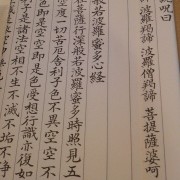 呪曰
波羅羯諦 波羅僧羯諦 菩提薩婆呵
般若波羅蜜多心経
菩薩行深般若波羅蜜多時照見五
空度一切苦厄舎利子色不異空空
色即是空空即是色受想行識亦復如
子是諸法空相不生不滅不垢不浄